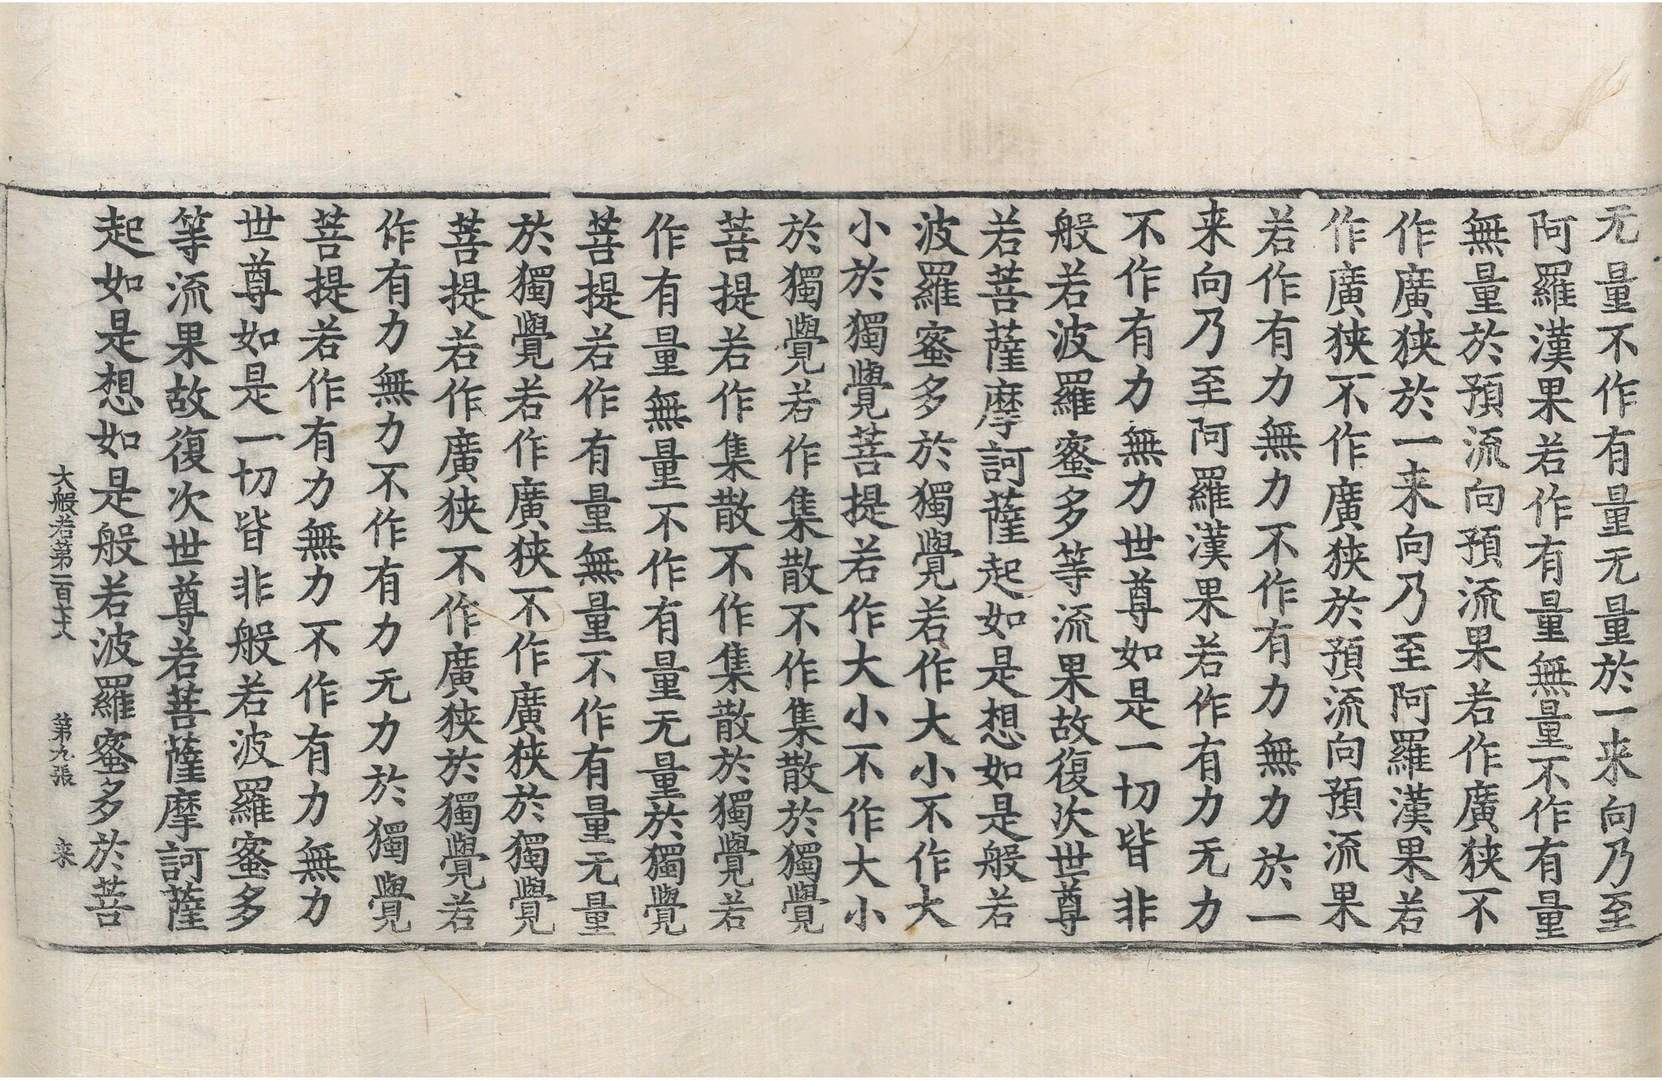 无量不作有量无量於一来向乃至
阿羅漢果若作有量無量不作有量
無量於預流向預流果若作廣狭不
作廣狭於一来向乃至阿羅漢果若
作廣狭不作廣狭於預流向預流果
若作有力無力不作有力無力於一
来向乃至阿羅漢果若作有力无力
不作有力無力世尊如是一切皆非
般若波羅蜜多等流果故復次世尊
若菩薩摩訶薩起如是想如是般若
波羅蜜多於獨覺若作大小不作大
小於獨覺菩提若作大小不作大小
於獨覺若作集散不作集散於獨覺
菩提若作集散不作集散於獨覺若
作有量無量不作有量无量於獨覺
菩提若作有量無量不作有量无量
於獨覺若作廣狭不作廣狭於獨覺
菩提若作廣狭不作廣狭於獨覺若
作有力無力不作有力无力於獨覺
菩提若作有力無力不作有力無力
世尊如是一切皆非般若波羅蜜多
等流果故復次世尊若菩薩摩訶薩
起如是想如是般若波羅蜜多於菩
大般若第一百七十八 第九張 来